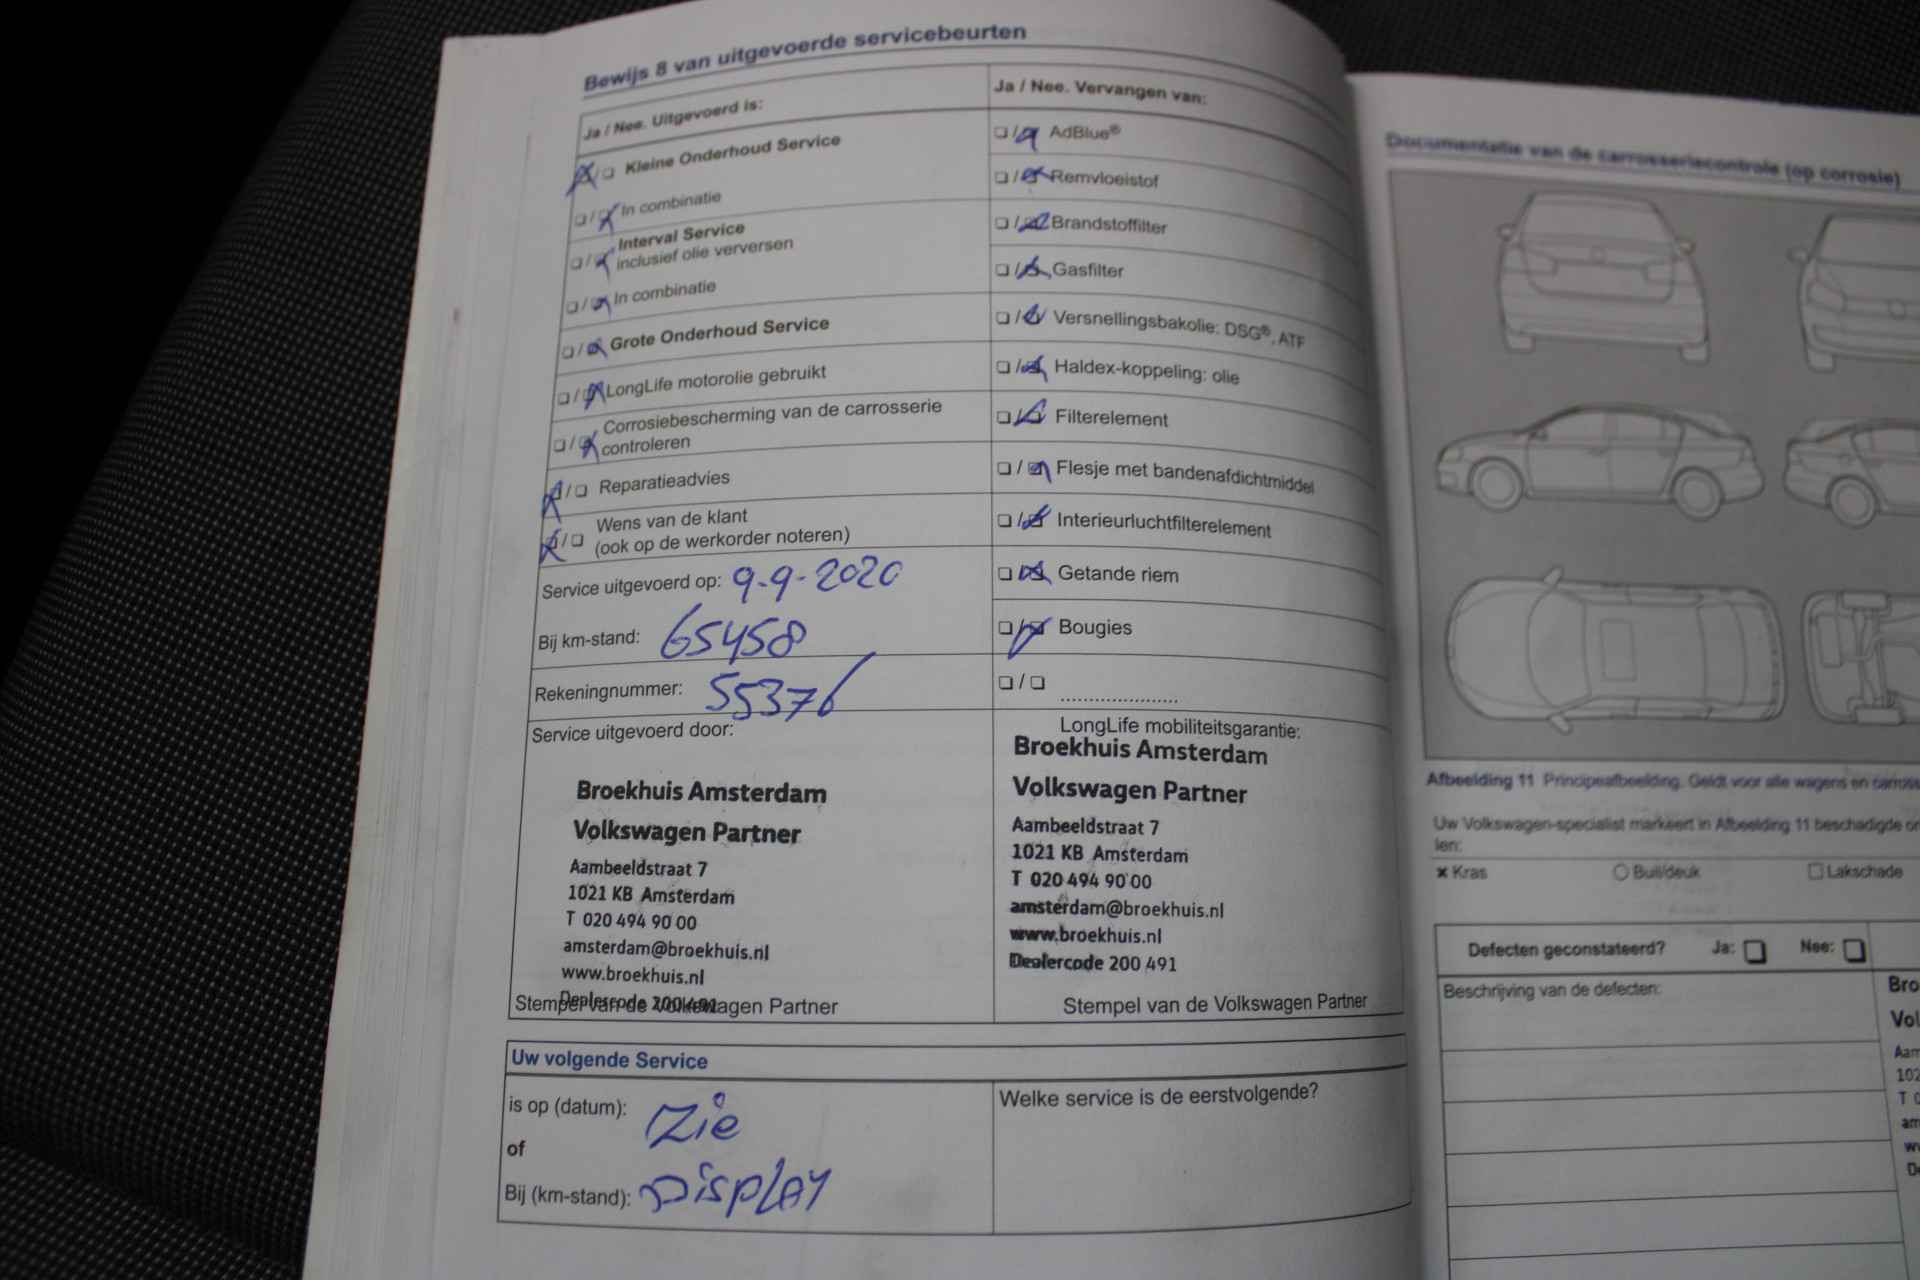 Bewijs 8 van uitgevoerde servicebeurten
Ja / Nee. Uitgevoerd is:
Kleine Onderhoud Service
In combinatie
Interval Service
inclusief olie verversen
In combinatie
Grote Onderhoud Service
LongLife motorolie gebruikt
Corrosiebescherming van de carrosserie
controleren
Reparatieadvies
Wens van de klant
(ook op de werkorder noteren)
Service uitgevoerd op: 9-9-2020
Bij km-stand: 65458
Rekeningnummer: 55376
Service uitgevoerd door:
Broekhuis Amsterdam
Volkswagen Partner
Aambeeldstraat 7
1021 KB Amsterdam
T 020 494 90 00
amsterdam@broekhuis.nl
www.broekhuis.nl
Dealercode 200 491
Stempel van de Volkswagen Partner
Ja / Nee. Vervangen van:
AdBlue®
Remvloeistof
Brandstoffilter
Gasfilter
Versnellingsbakolie: DSG®, ATF
Haldex-koppeling: olie
Filterelement
Flesje met bandenafdichtmiddel
Interieurluchtfilterelement
Getande riem
Bougies
LongLife mobiliteitsgarantie:
Broekhuis Amsterdam
Volkswagen Partner
Aambeeldstraat 7
1021 KB Amsterdam
T 020 494 90 00
amsterdam@broekhuis.nl
www.broekhuis.nl
Dealercode 200 491
Stempel van de Volkswagen Partner
Uw volgende Service
is op (datum): Zie
of
Bij (km-stand): Display
Welke service is de eerstvolgende?
Documentatie van de carrosseriecontrole (op corrosie)
Afbeelding 11 Principeafbeelding. Geldt voor alle wagens en
Uw Volkswagen-specialist markeert in Afbeelding 11 beschadigde
len:
Kras
Buil/deuk
Lakschade
Defecten geconstateerd? Ja: Nee:
Beschrijving van de defecten: